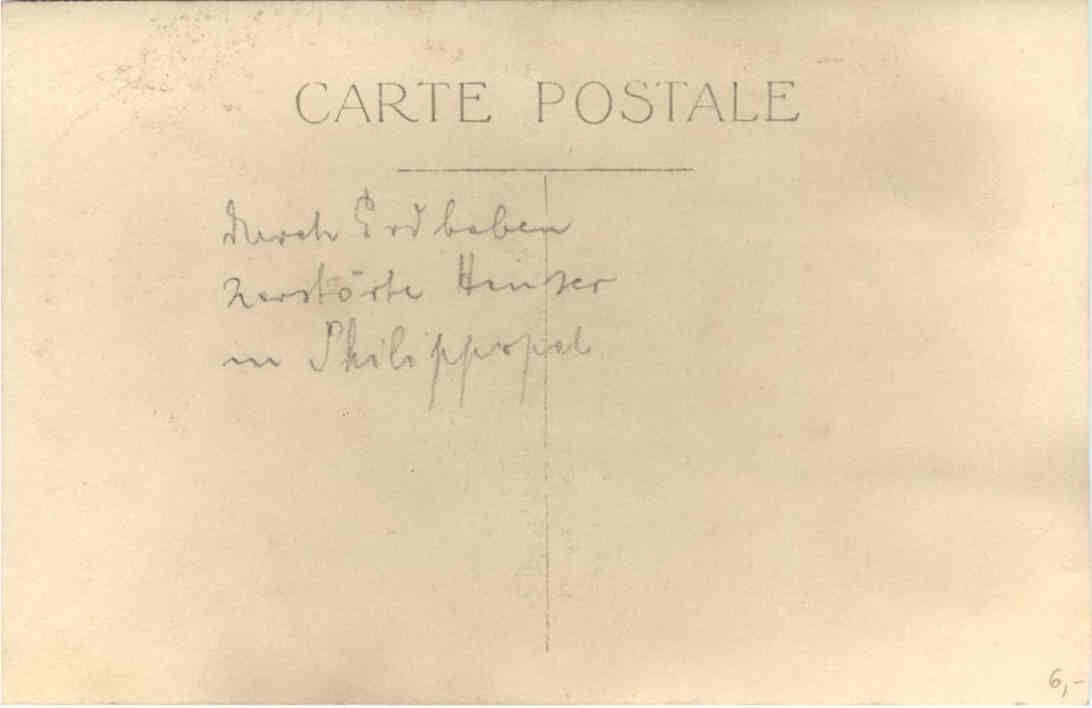 CARTE POSTALE
durch Erdbeben
zerstörte Häuser
in Philippopel
6,-